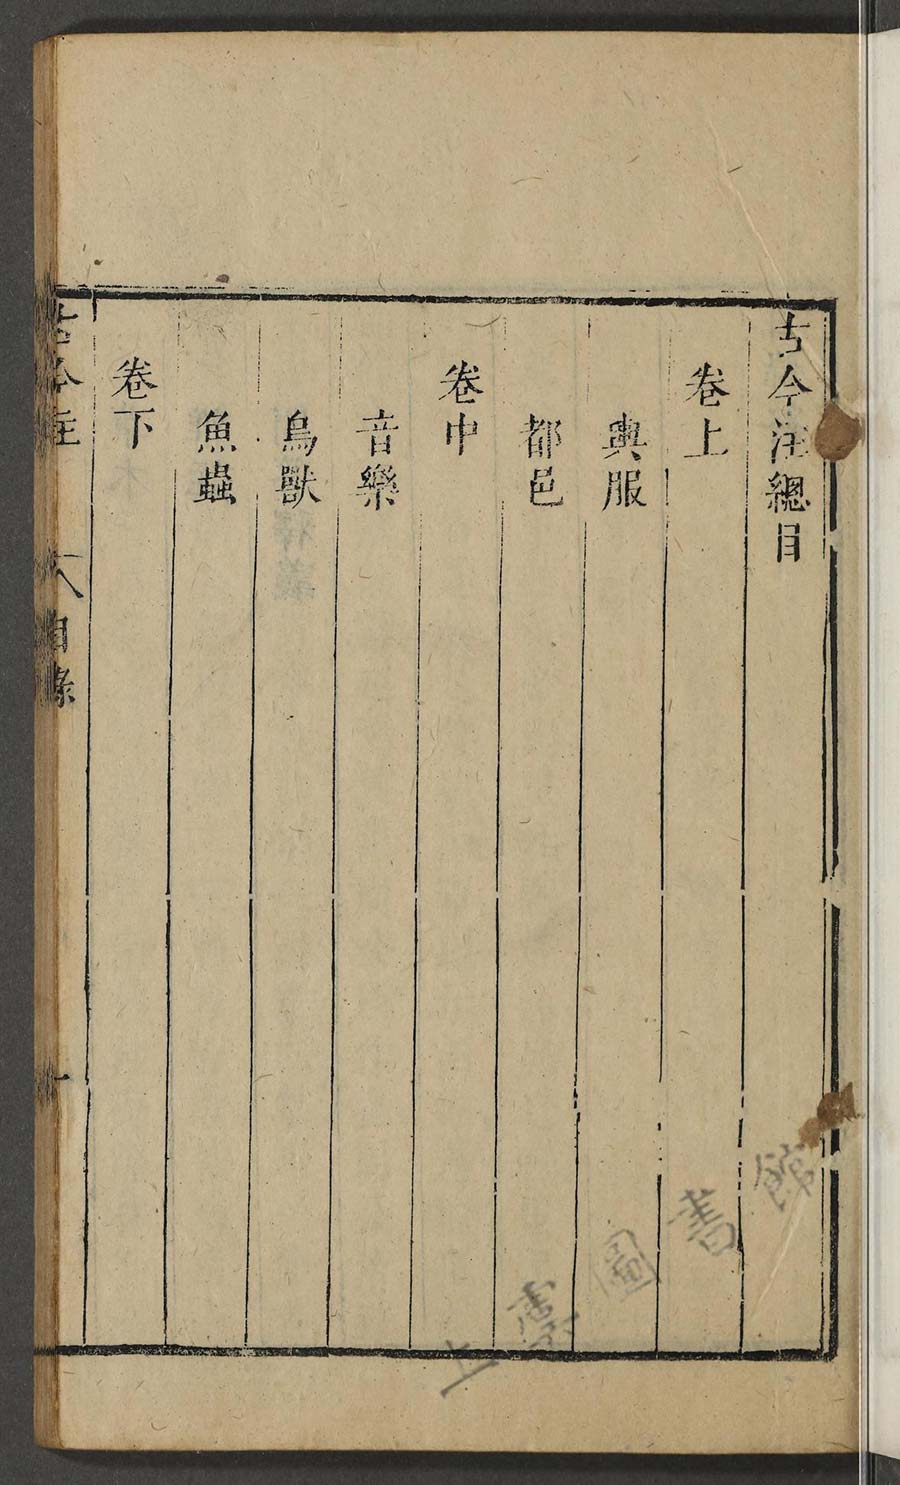 古今注總目
卷上
輿服
都邑
卷中
音樂
鳥獸
魚蟲
卷下
古今註
目錄
一
上
圖書館